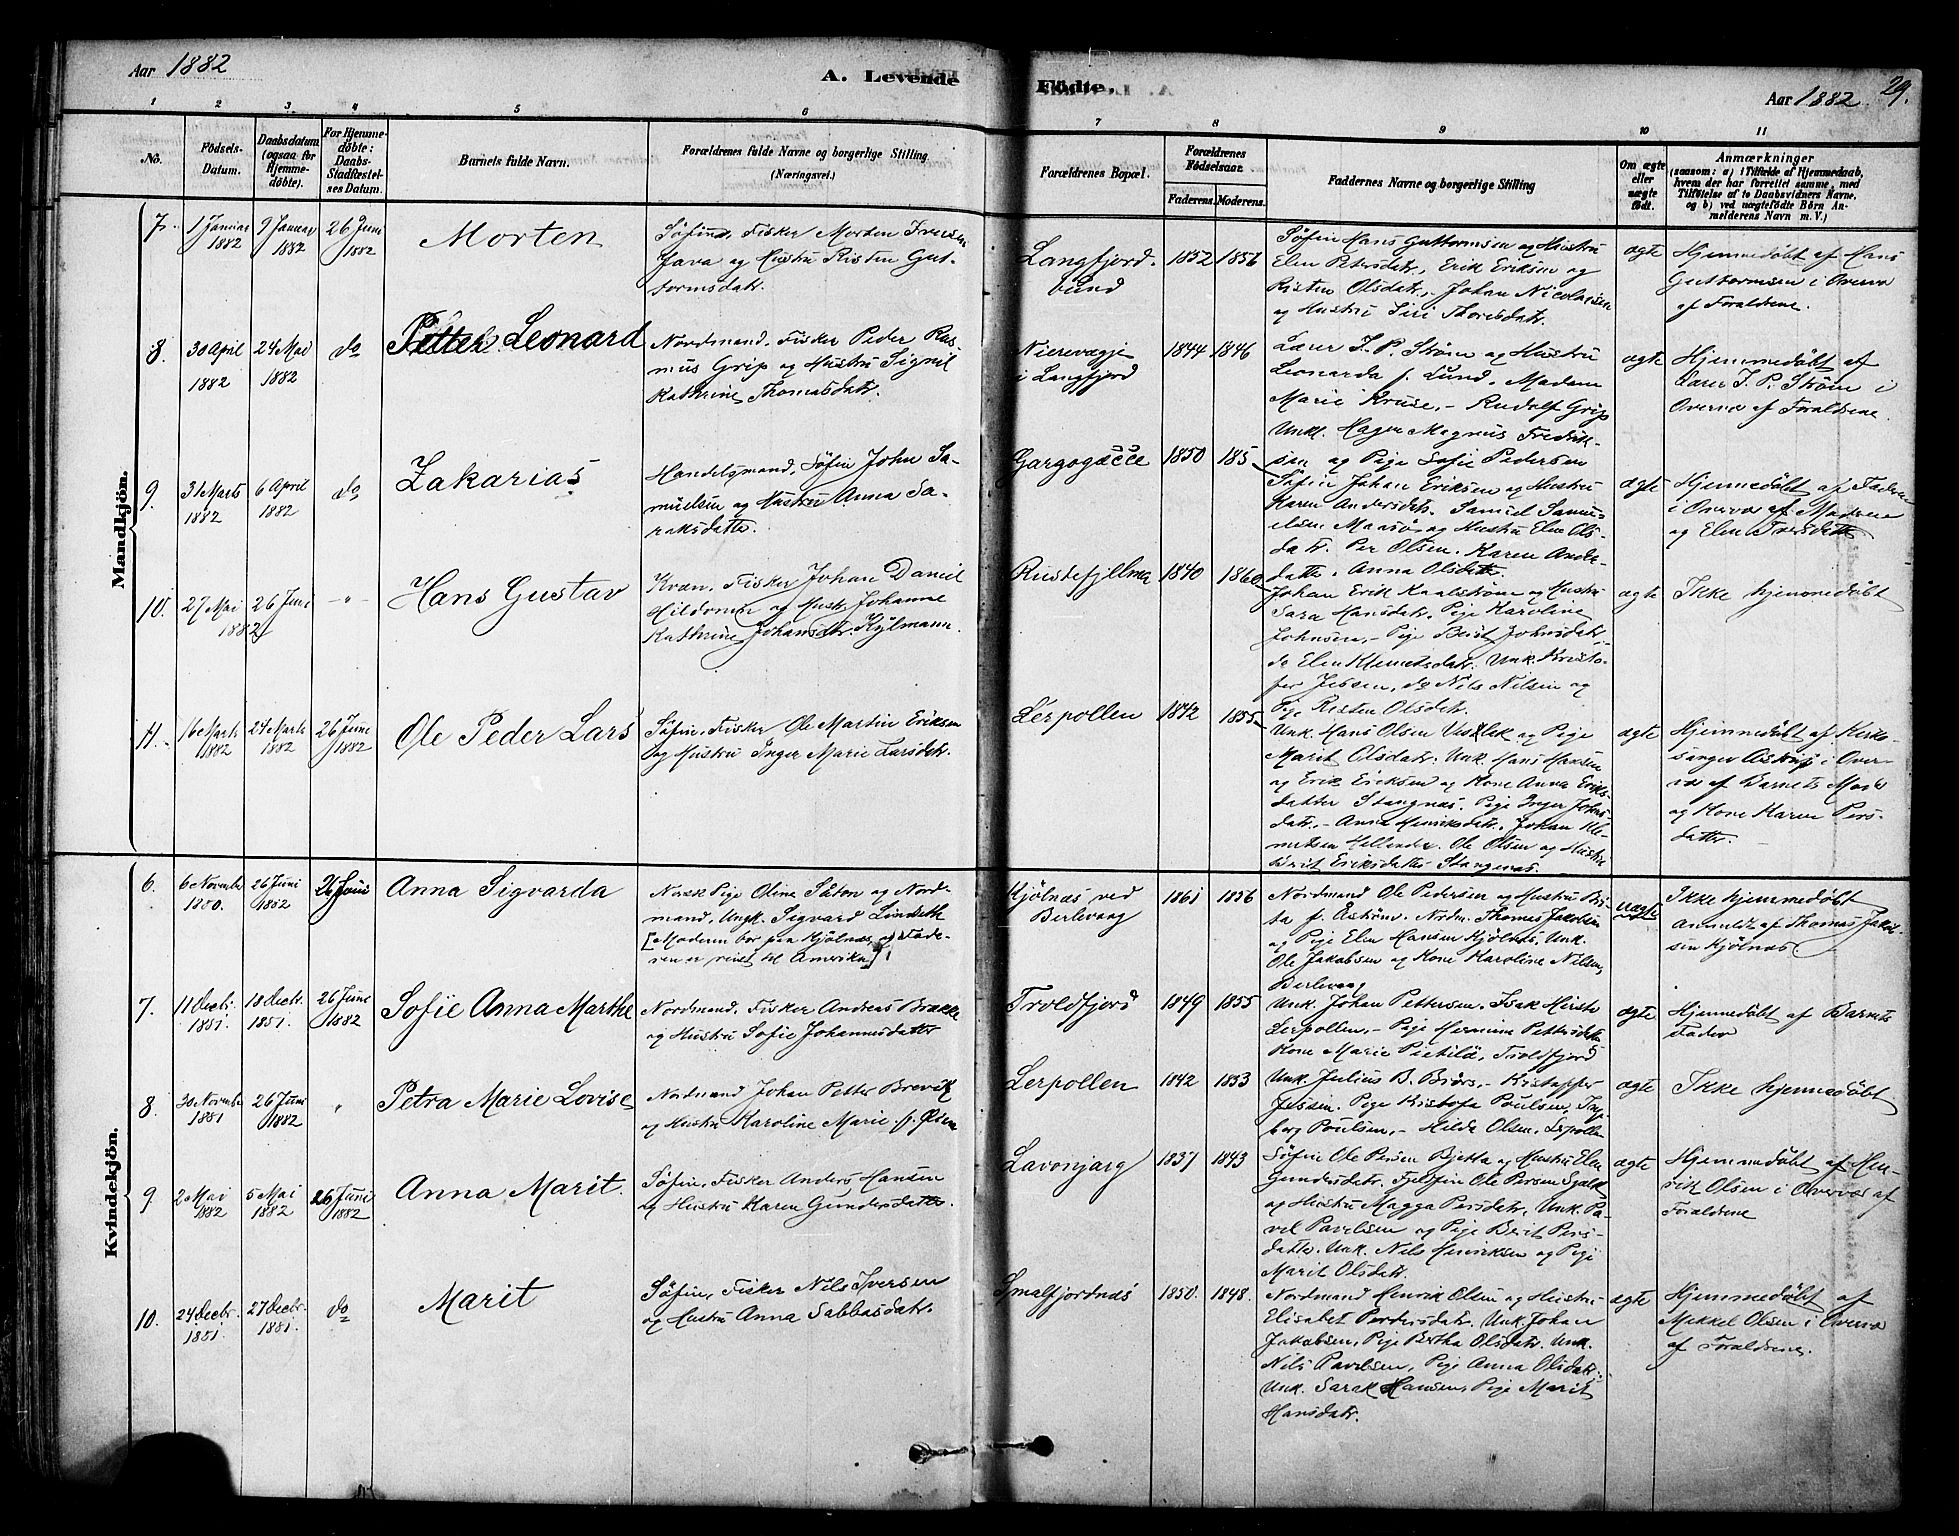 Aar 1882
A. Levende
Födte,
Aar 1882
29.
1 2 3 4 5 6
7 8 9 10 11
No.
Födsels-Datum.
Daabsdatum (ogsaa for Hjemmedöbte).
For Hjemmedöbte: Daabs-Stadfæstelses Datum.
Barnets fulde Navn.
Forældrenes fulde Navne og borgerlige Stilling
(Næringsvei.)
Forældrenes Bopæl.
Forældrenes Födselsaar.
Faderens. Moderens.
Faddernes Navne og borgerlige Stilling
Om ægte eller uægte födt.
Anmærkninger
(saasom: a) i Tilfælde af Hjemmedaab, hvem der har forrettet samme, med Tilföielse af to Daabsvidners Navne, og b) ved uægtefödte Börn Anmelderens Navn m. V.)
Mandkjön.
7. 1 Januar 1882 9 Januar 1882 26 Juni 1882
Morten
Søfin, Fisker Morten Iversen
Java og Hustru Risten Gut-
tormsdatr.
Langfjord-
bund
1852 1856
Søfin Hans Guttormsen og Hustru
Elen Petersdatr, Erik Eriksen og
Risten Olsdatr., Johan Nicolaisen
og Hustru Siri Thorisdatr.
ægte
Hjemmedøbt af Hans
Guttormsen i Overvær
af Forældrene.
8. 30 April 1882 24 Mai 1882 do
Petter Leonard
Nordmand. Fisker Peder Ras-
mus Grip og Hustru Signil
Kathrine Thomasdatr.
Nierevægje
i Langfjord
1844 1846
Lærer J. P. Strøm og Hustru
Leonarda f. Lund. Madam
Marie Kruse, - Rudolf Grip
Unk. Hagen Magnus Fredrik-
sen og Pige Sofie Pedersen
ægte
Hjemmedøbt af
Lærer J. P. Strøm i
Overvær af Forældrene.
9. 31 Marts 1882 6 April 1882 do
Zakarias
Handelsmand, Søfin John Sa-
muelsen og Hustru Anna Sa-
raksdatter.
Gargogæcce
1850 185
Søfin Johan Eriksen og Hustru
Karen Andersdatr. Samuel Samu-
elsen Maasø og Hustru Elen Ols-
datr. Per Olsen. Karen Anders-
datter. Anna Olsdatter.
ægte
Hjemmedøbt af Faderen
i Overvær af Moderen
og Elen Iversdatter
10. 27 Mai 26 Juni 1882 - " -
Hans Gustav
Kvæn. Fisker Johan Daniel
Hildonen og Hustr. Johanne
Kathrine Johansdtr. Kylmann.
Rustefjellma
1840 1860
Johan Erik Kaalstrøm og Hustru
Sara Hansdatr. Pige Karoline
Johnsen, - Pige Berit Johnsdatr,
do Elen Klemetsdatr. Unk. Kristo-
fer Jessen, do Nils Nilsen og
Pige Risten Olsdatr.
ægte
Ikke hjemmedøbt
11. 16 Marts 1882 24 Marts 1882 26 Juni 1882
Ole Peder Lars
Søfin. Fisker Ole Martin Eriksen
og Hustru Inger Marie Larsdatr.
Lerpollen
1842 1855
Unk. Hans Olsen og Pige
Marit Olsdatr. Unk. Hans Hansen
og Erik Eriksen og Kone Anna Eriks-
datter Stangnæs. Pige Inger Johns-
datr. - Anna Henriksdatr. Johan Kle-
metsen Hellender. Ole Olsen og Hustru
Berit Eriksdatter Stangenæs.
ægte
Hjemmedøbt af Kirke-
sanger Aistrup i Over-
vær af Barnets Moder
og Kone Karen Pers-
datter.
Kvindekjön.
6. 6 November 1880. 26 Juni 1882 26 Juni
Anna Sigvarda
Norsk Pige Oline Sæton og Nord-
mand. Ungk. Sigvard Lindseth
[Moderen bor paa Kjølnæs og Fade-
ren er reist til Amerika].
Kjølnæs ved
Berlevaag
1861 1856
Nordmand Ole Pedersen og Hustru Bri-
ta f. Åstrøm. Nordm. Thomas Jakobsen
og Pige Elen Hansen Kjølnæs. Unk.
Ole Jakobsen og Kone Karoline Nilsen,
Berlevaag
uægte
Ikke hjemmedøbt
anmeldt af Thomas Jakob-
sen Kjølnæs
7. 11 Decbr. 1881. 18 Decbr. 1881. 26 Juni 1882
Sofie Anna Marthe
Nordmand. Fisker Andreas Brække
og Hustru Sofie Johannesdatter
Troldfjord
1849 1855
Unk. Johan Pettersen. Isak
Lerpollen, - Pige Hermina Pettersdatter
Kone Marie Pietilä, Troldfjord
ægte
Hjemmedøbt af Barnets
Fader
8. 30 November 1881 26 Juni 1882 "
Petra Marie Lovise
Nordmand Johan Petter Brevik
og Hustru Karoline Marie f. Olsen
Lerpollen
1842 1853
Unk. Julius B. Biørs, - Kristoffer
Jessen. Pige Kistofa Poulsen, Inge-
borg Poulsen, - Hilda Olsen, Lerpollen
ægte
Ikke hjemmedøbt
9 2 Mai 1882 5 Mai 1882 26 Juni 1882
Anna Marit.
Søfin. Fisker Anders Hansen
og Hustru Karen Gundersdatter.
Lavonjarg
1837 1843
Søfin Ole Persen Bjetta og Hustru Elen
Gundersdatr. Fjeldfin Ole Persen
og Hustru Magga Persdatr. Unk. Pa-
vel Pavelsen og Pige Berit Pers-
datter. Unk. Nils Henriksen og Pige
Marit Olsdatr.
ægte
Hjemmedøbt af Hen-
rik Olsen i Overvær af
Forældrene
10. 24 Decbr. 1881. 27 Decbr. 1881. do
Marit
Søfin. Fisker Nils Iversen
og Hustru Anna Sabbasdatr.
Smalfjordnæs
1850. 1848.
Nordmand Henrik Olsen og Hustru
Elisabet Pedersdatr. Unk. Johan
Jakobsen, Pige Bertha Olsdatr. Unk.
Nils Pavelsen, Pige Anna Olsdatr.
Unk. Sarak Hansen, Pige Marit
Hansdatr.
ægte
Hjemmedøbt af
Mekkel Olsen i Overvær
af Forældrene.